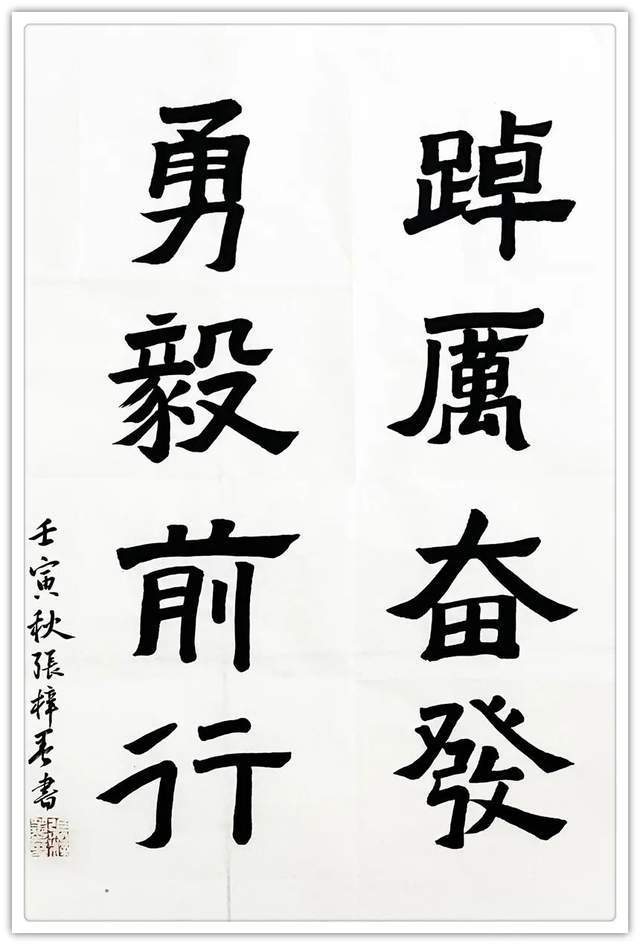 踔厲奋發
勇毅前行
壬寅秋張梓書